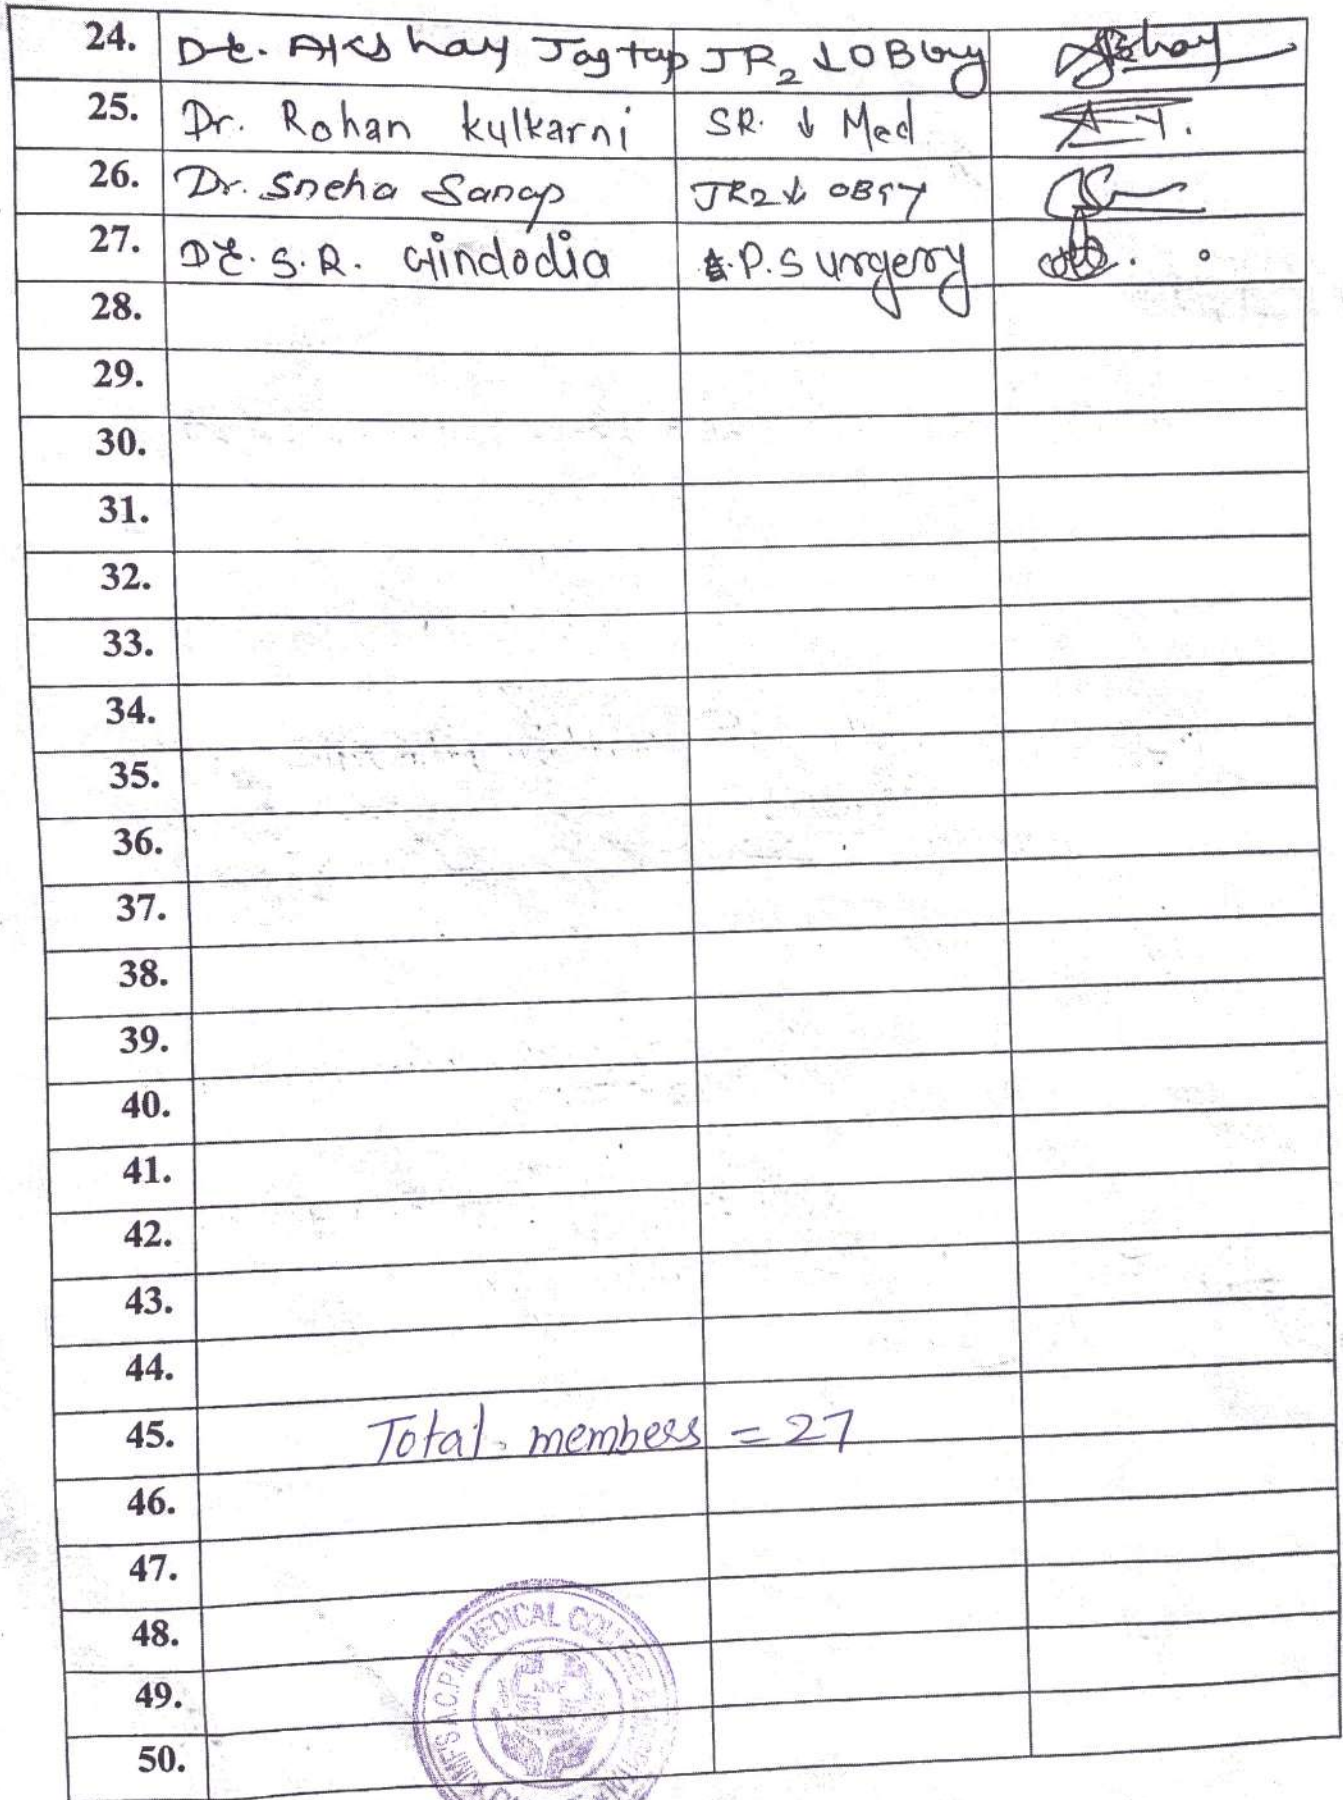 24. Dr. Akshay Jagtap JR2 ↓ OBGY Akshay
25. Dr. Rohan Kulkarni SR. ↓ Med
26. Dr. Sneha Sanap JR2 ↓ OBGY
27. Dr. S.R. Gindodia A.P. Surgery
28.
29.
30.
31.
32.
33.
34.
35.
36.
37.
38.
39.
40.
41.
42.
43.
44.
45. Total members = 27
46.
47.
48.
49.
50.
A.C.P.M. MEDICAL COLLEGE